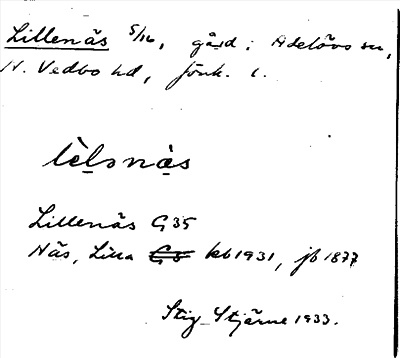 Lillenäs 5/16, gård i Adelövs sn,
N. Vedbo hd, Jönk. l.
Lillenäs G35
Näs, Lilla G5 kb1931, jb1877
Stig Stjärne 1933.